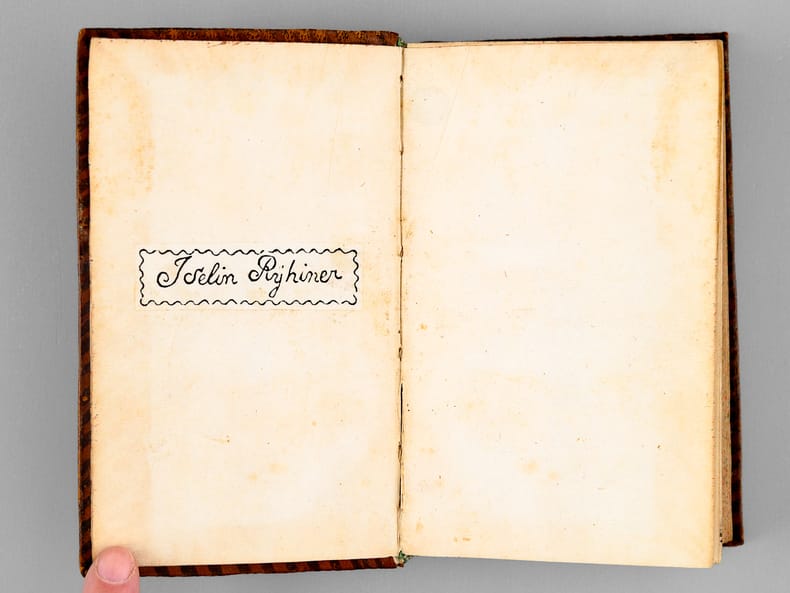 Iselin Rÿhiner